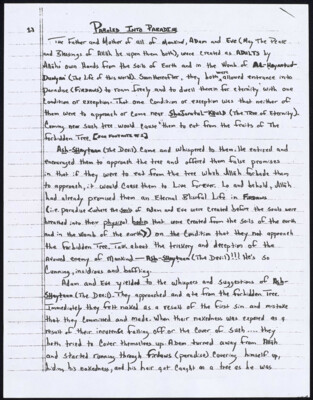 53
Paroled Into Paradise
The Father and Mother of all of Mankind, Adam and Eve (May The Peace
and Blessings of Allah be upon them both), were created as ADULTS by
Allah's own Hands from the soils of Earth and in the Womb of
Dunya (The Life of this World). Soon thereafter, they both were allowed entrance into
paradise (Firdows) to roam freely and to dwell therein for eternity with one
Condition or exception. That one Condition or exception was that neither of
them were to approach or come near (The Tree of Eternity).
Coming near such tree would cause them to eat from the fruits of The
forbidden Tree.
Ash-Shaytaan (The Devil) came and whispered to them. He enticed and
encouraged them to approach the tree and offered them false promises
in that if they were to eat from the tree which Allah forbade them
to approach, it would cause them to Live forever. Lo and behold, Allah
had already promised them an Eternal Blissful Life in Firdows
(i.e. paradise where the souls of Adam and Eve were created before the souls were
breathed into their physical bodies that were created from the soils of the earth
and in the womb of the earth) on the Condition that they not approach
the forbidden Tree. Talk about the trickery and deception of the
avowed enemy of Mankind — Ash-Shaytaan (The Devil)!!! He's so
Cunning, insidious and baffling.
Adam and Eve yielded to the whispers and suggestions of Ash-
Shaytaan (The Devil). They approached and ate from the forbidden Tree.
Immediately they felt naked as a result of the first sin and mistake
that they commited and made. When their nakedness was exposed as a
result of their innocence falling off or the Cover of such .... they
both tried to Cover themselves up. Adam turned away from Allah
and started running through Firdows (paradise) Covering himself up,
hiding his nakedness, and his hair got caught on a tree as he was